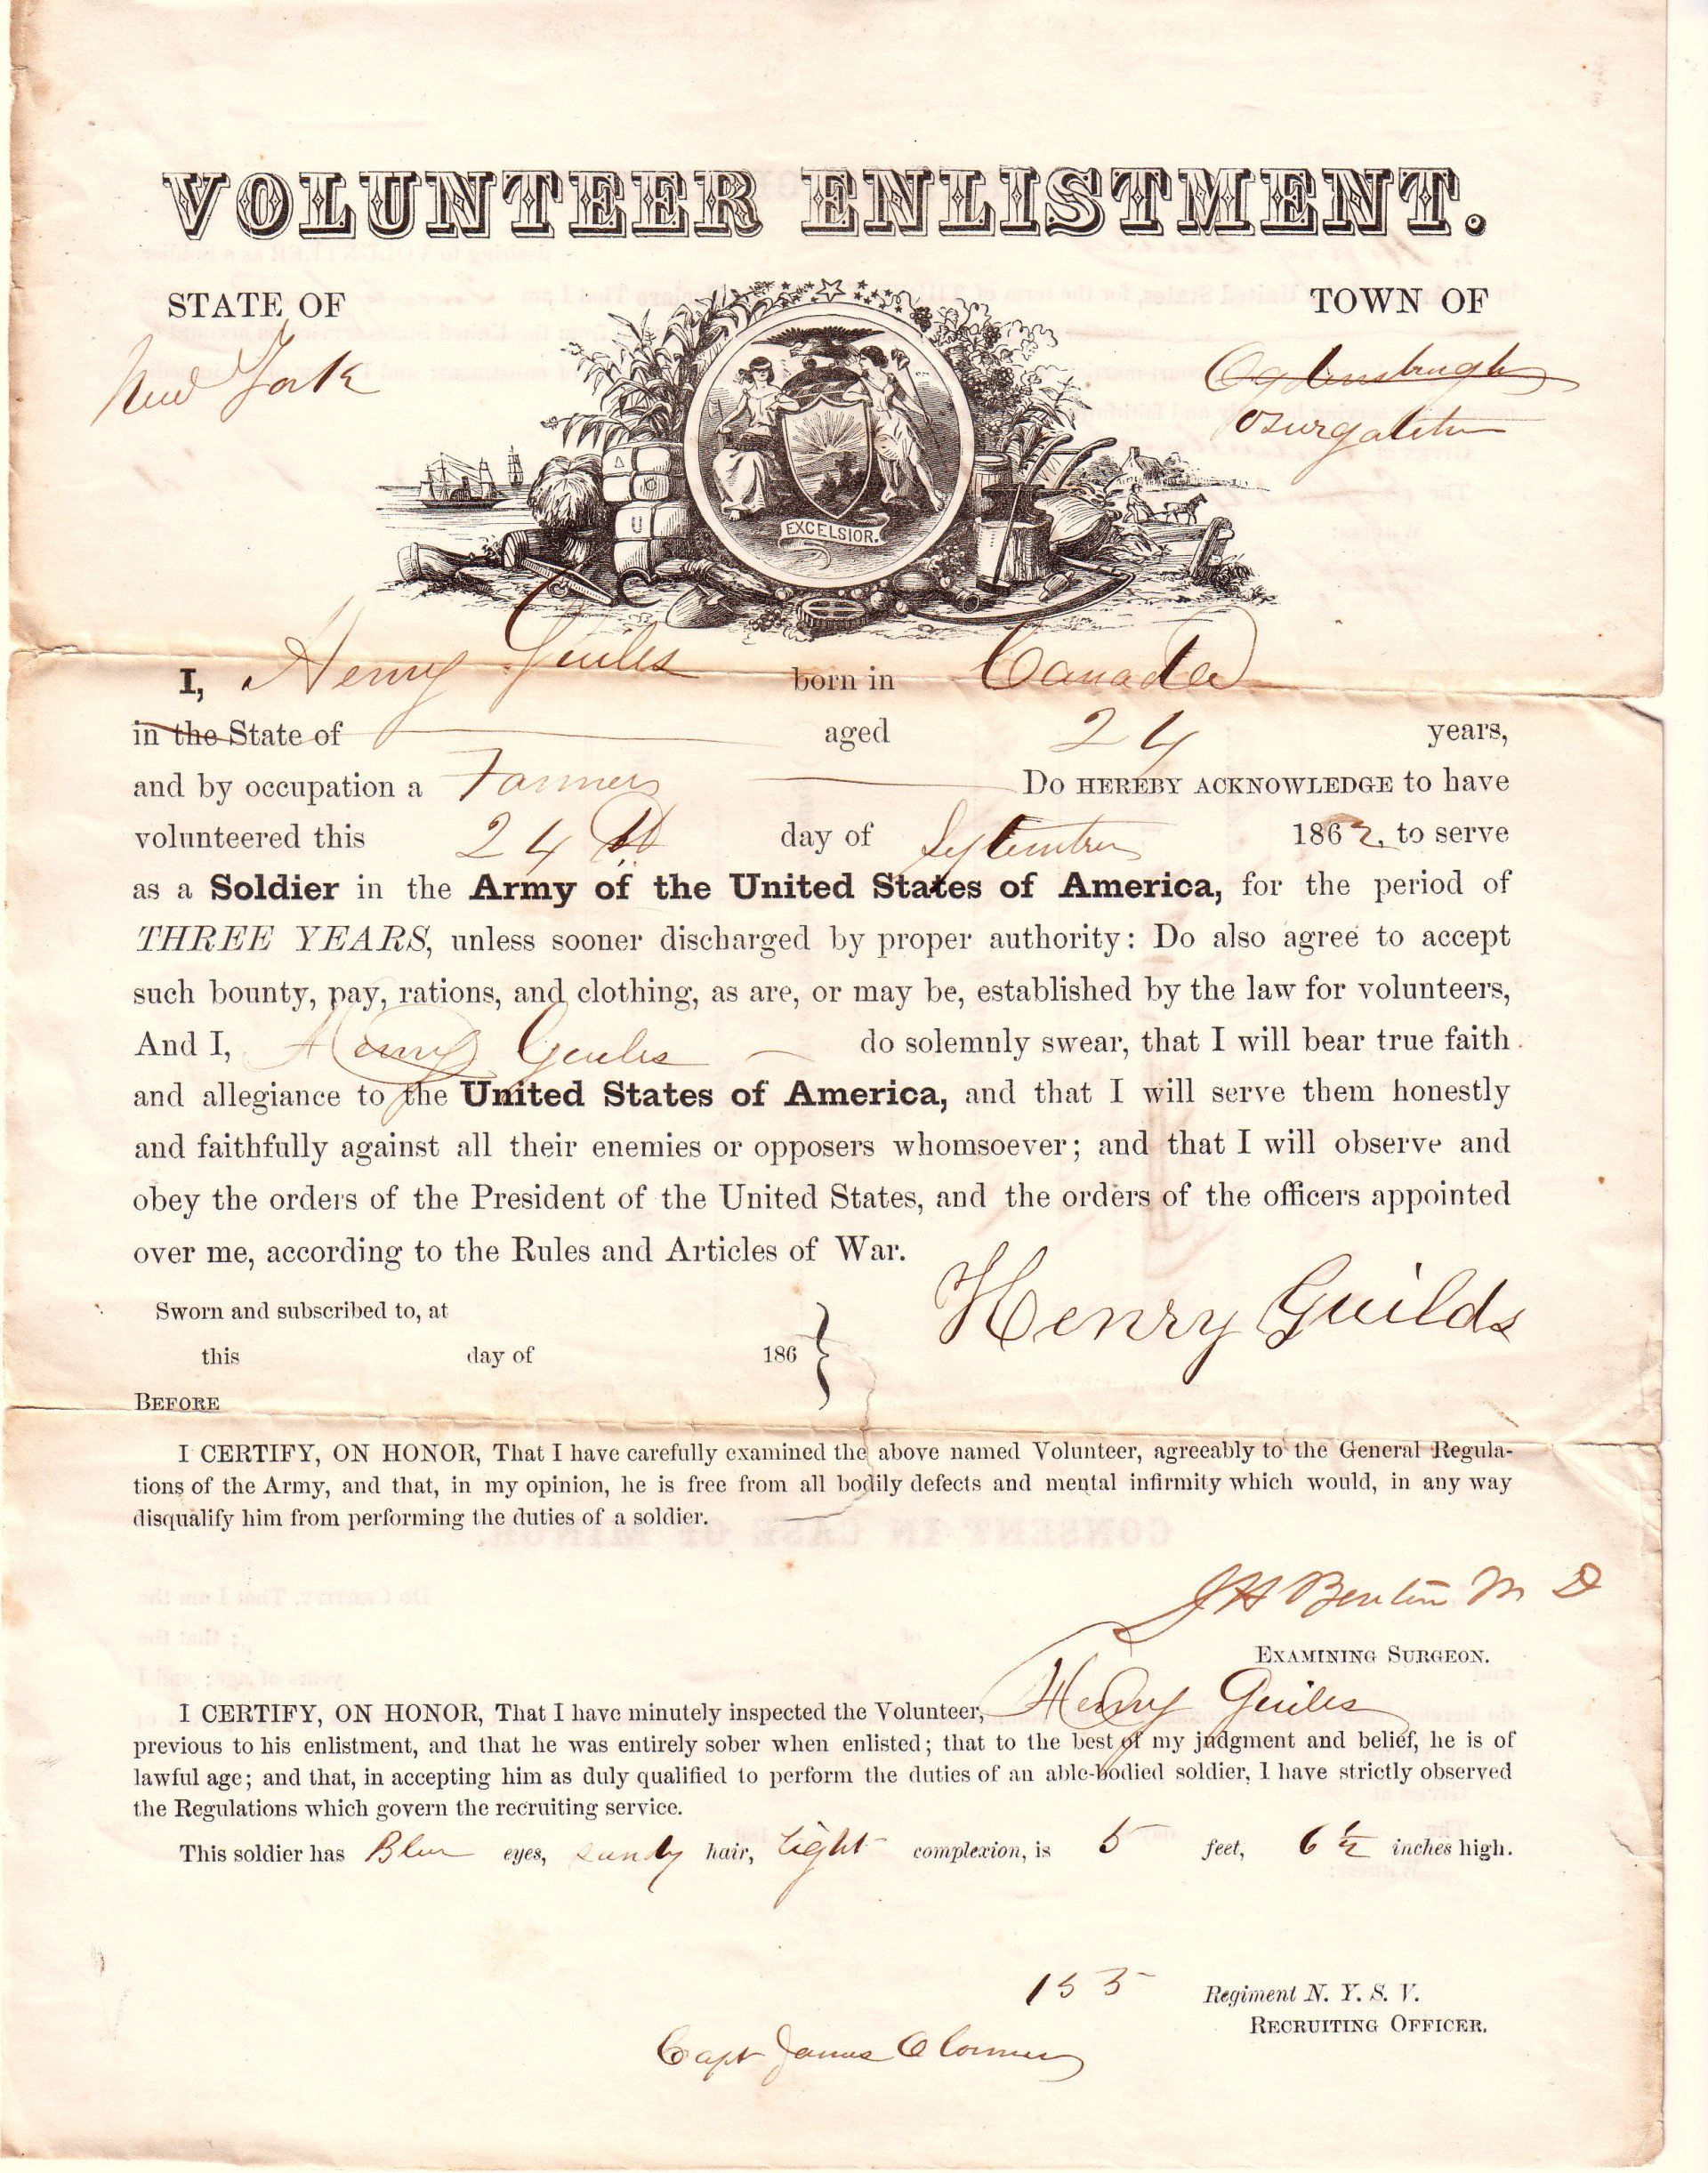 VOLUNTEER ENLISTMENT.
STATE OF TOWN OF
New York Ogdensburgh
EXCELSIOR.
I, Henry Guiles born in Canada
in the State of aged 24 years,
and by occupation a Farmer Do HEREBY ACKNOWLEDGE to have
volunteered this 24th day of September 1862, to serve
as a Soldier in the Army of the United States of America, for the period of
THREE YEARS, unless sooner discharged by proper authority: Do also agree to accept
such bounty, pay, rations, and clothing, as are, or may be, established by the law for volunteers,
And I, Henry Guiles do solemnly swear, that I will bear true faith
and allegiance to the United States of America, and that I will serve them honestly
and faithfully against all their enemies or opposers whomsoever; and that I will observe and
obey the orders of the President of the United States, and the orders of the officers appointed
over me, according to the Rules and Articles of War.
Henry Guilds
Sworn and subscribed to, at
this day of 186
BEFORE
I CERTIFY, ON HONOR, That I have carefully examined the above named Volunteer, agreeably to the General Regula-
tions of the Army, and that, in my opinion, he is free from all bodily defects and mental infirmity which would, in any way
disqualify him from performing the duties of a soldier.
J H Benton M D
EXAMINING SURGEON.
I CERTIFY, ON HONOR, That I have minutely inspected the Volunteer, Henry Guiles
previous to his enlistment, and that he was entirely sober when enlisted; that to the best of my judgment and belief, he is of
lawful age; and that, in accepting him as duly qualified to perform the duties of an able-bodied soldier, I have strictly observed
the Regulations which govern the recruiting service.
This soldier has Blue eyes, sandy hair, light complexion, is 5 feet, 6 1/2 inches high.
153 Regiment N. Y. S. V.
RECRUITING OFFICER.
Capt James